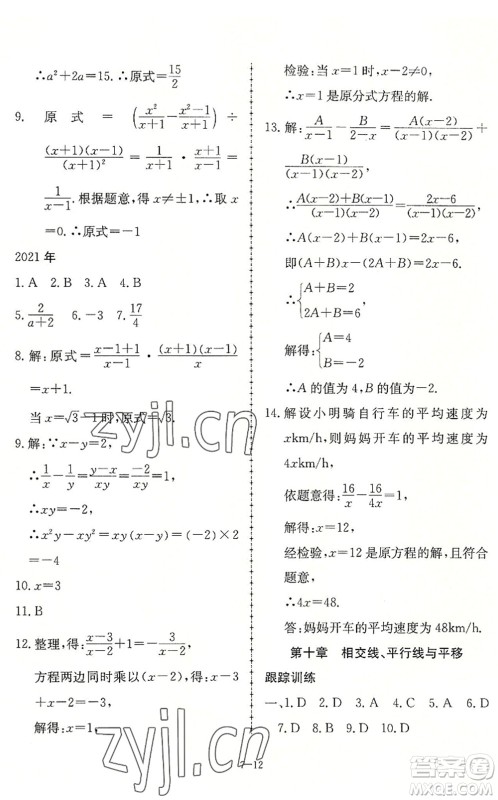 ∴a²+2a=15. ∴原式=15/2
9. 原式=(x²/(x+1)-(x²-1)/(x+1))÷
(x+1)(x-1)/(x+1)²=1/(x+1)·(x+1)/(x-1)=
1/(x-1).根据题意,得 x≠±1,∴取 x
=0.∴原式=-1
2021年
1. A 2. B 3. A 4. B
5. 2/(a+2) 6. -3 7. 17/4
8. 解:原式=(x-1+1)/(x-1)·(x+1)(x-1)/x
=x+1.
当 x=√3-1时,原式=√3.
9. 解:∵x-y=2,
∴1/x-1/y=(y-x)/xy=-2/xy=1,
∴xy=-2,
∴x²y-xy²=xy(x-y)=(-2)×2
=-4
10. x=3
11. B
12. 整理,得:(x-3)/(x-2)+1=-3/(x-2),
方程两边同时乘以(x-2),得:x-
3+x-2=-3,
解得:x=1,
检验:当 x=1时,x-2≠0,
∴x=1是原分式方程的解.
13. 解:A/(x-1)-B/(2-x)=A(x-2)/((x-1)(x-2))+
B(x-1)/((x-1)(x-2)),
∴(A(x-2)+B(x-1))/((x-1)(x-2))=(2x-6)/((x-1)(x-2))
∴A(x-2)+B(x-1)=2x-6,
即(A+B)x-(2A+B)=2x-6.
∴{A+B=2
2A+B=6,
解得:{A=4
B=-2,
∴A的值为4,B的值为-2.
14. 解设小明骑自行车的平均速度为
xkm/h,则妈妈开车的平均速度为
4xkm/h,
依题意得:16/x-16/4x=1,
解得:x=12,
经检验,x=12是原方程的解,且符合
题意,
∴4x=48.
答:妈妈开车的平均速度是48km/h.
第十章 相交线、平行线与平移
跟踪训练
一、1. D 2. D 3. A 4. B 5. D 6. B
7. D 8. D 9. D 10. D
zyjl.cn
zyjl.cn
答案圈